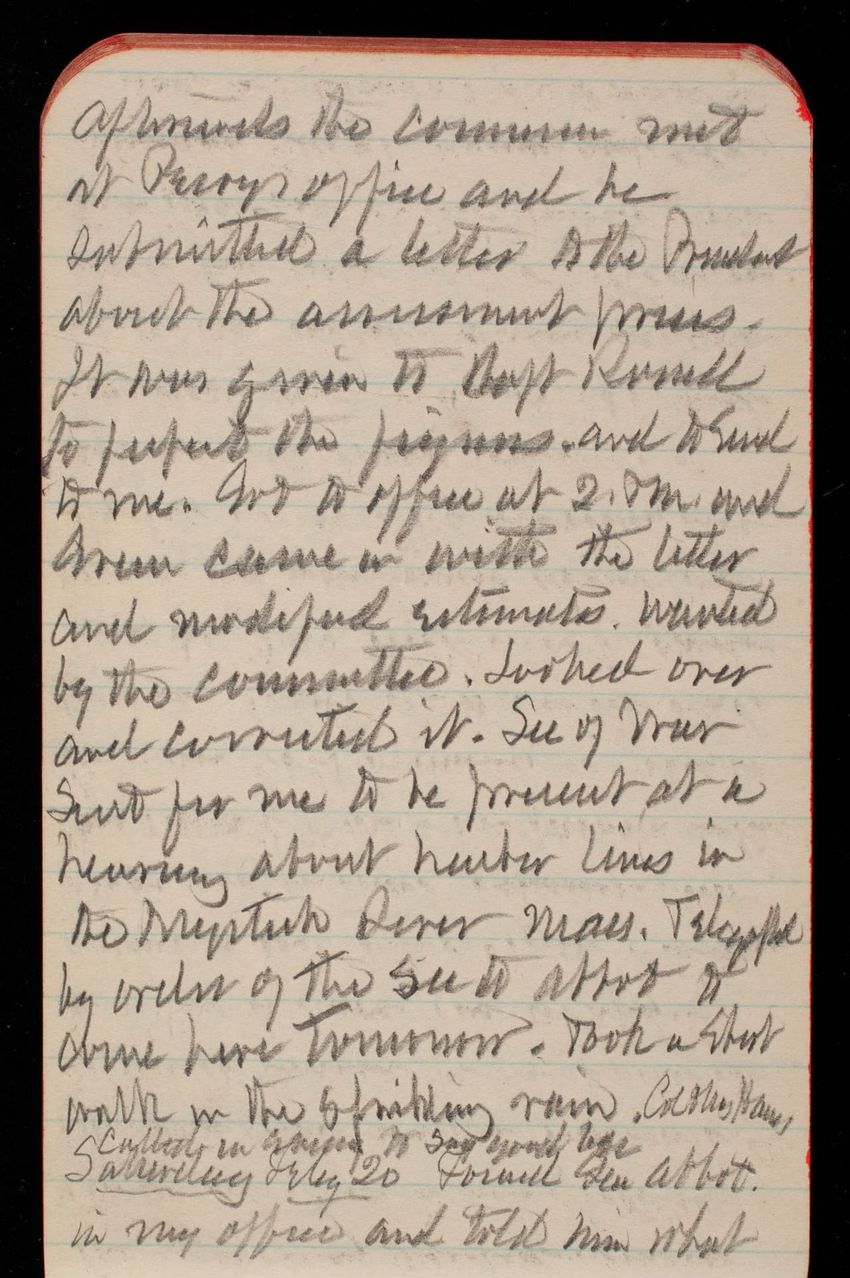 afterwards the common met
at Percy's office and he
submitted a letter to the President
about the armament
It was given to Capt Russell
to perfect the figures. and to send
to me. Got to office at 2. P.M. and
Green came in with the letter
and modified estimates. wanted
by the committee. Looked over
and corrected it. Sec of War
Sent for me to be present at a
hearing about harbor lines in
the Mystick River Mass. Telegraphed
by order of the Sec to Abbot to
come here tomorrow. Took a short
walk in the sprinkling rain. Col & Mrs
called in evening to say good bye
Saturday Feby 20 Found Gen Abbot.
in my office and told him what